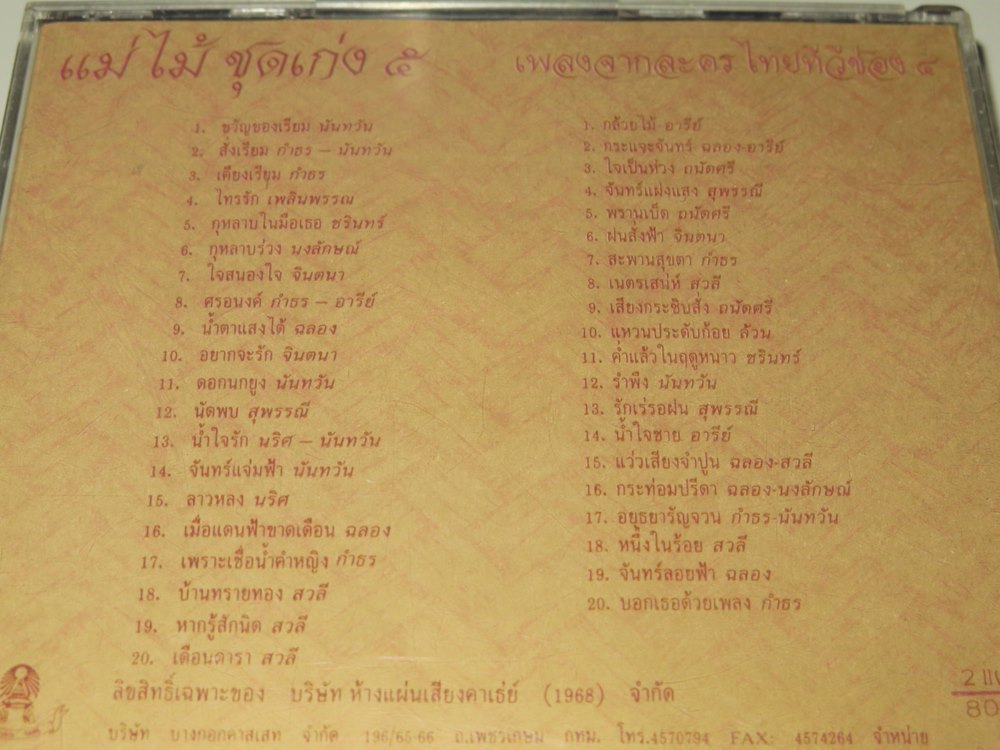 แม่ไม้ ชุดเก่ง ๕
1. ขวัญของเรียม นันทวัน
2. สั่งเรียม กำธร – นันทวัน
3. เคียงเรียม กำธร
4. ไทรรัก เพลินพรรณ
5. กุหลาบในมือเธอ ชรินทร์
6. กุหลาบร่วง นงลักษณ์
7. ใจสนองใจ จินตนา
8. ศรอนงค์ กำธร – อารีย์
9. น้ำตาแสงไต้ ฉลอง
10. อยากจะรัก จินตนา
11. ดอกนกยูง นันทวัน
12. นัดพบ สุพรรณี
13. น้ำใจรัก นริศ – นันทวัน
14. จันทร์แจ่มฟ้า นันทวัน
15. ลาวหลง นริศ
16. เมื่อแดนฟ้าขาดเดือน ฉลอง
17. เพราะเชื่อน้ำคำหญิง กำธร
18. บ้านทรายทอง สวลี
19. หากรู้สักนิด สวลี
20. เดือนดารา สวลี
เพลงจากละครไทยทีวีช่อง ๔
1. กล้วยไม้ อารีย์
2. กระแจะจันทร์ ฉลอง-อารีย์
3. ใจเป็นห่วง ถนัดศรี
4. จันทร์แฝงแสง สุพรรณี
5. พรานเบ็ด ถนัดศรี
6. ฝนสั่งฟ้า จินตนา
7. สะพานสุขตา กำธร
8. เนตรเสน่ห์ สวลี
9. เสียงกระซิบสั่ง ถนัดศรี
10. แหวนประดับก้อย ล้วน
11. ค่ำแล้วในฤดูหนาว ชรินทร์
12. รำพึง นันทวัน
13. รักเร่รอฝน สุพรรณี
14. น้ำใจชาย อารีย์
15. แว่วเสียงจำปูน ฉลอง-สวลี
16. กระท่อมปรีดา ฉลอง-นงลักษณ์
17. อยุธยารัญจวน กำธร-นันทวัน
18. หนึ่งในร้อย สวลี
19. จันทร์ลอยฟ้า ฉลอง
20. บอกเธอด้วยเพลง กำธร
ลิขสิทธิ์เฉพาะของ บริษัท ห้างแผ่นเสียงคาเธ่ย์ (1968) จำกัด
บริษัท บางกอกคาสเสท จำกัด 196/65-66 ถ.เพชรเกษม กทม. โทร.4570794 FAX: 4574264 จำหน่าย